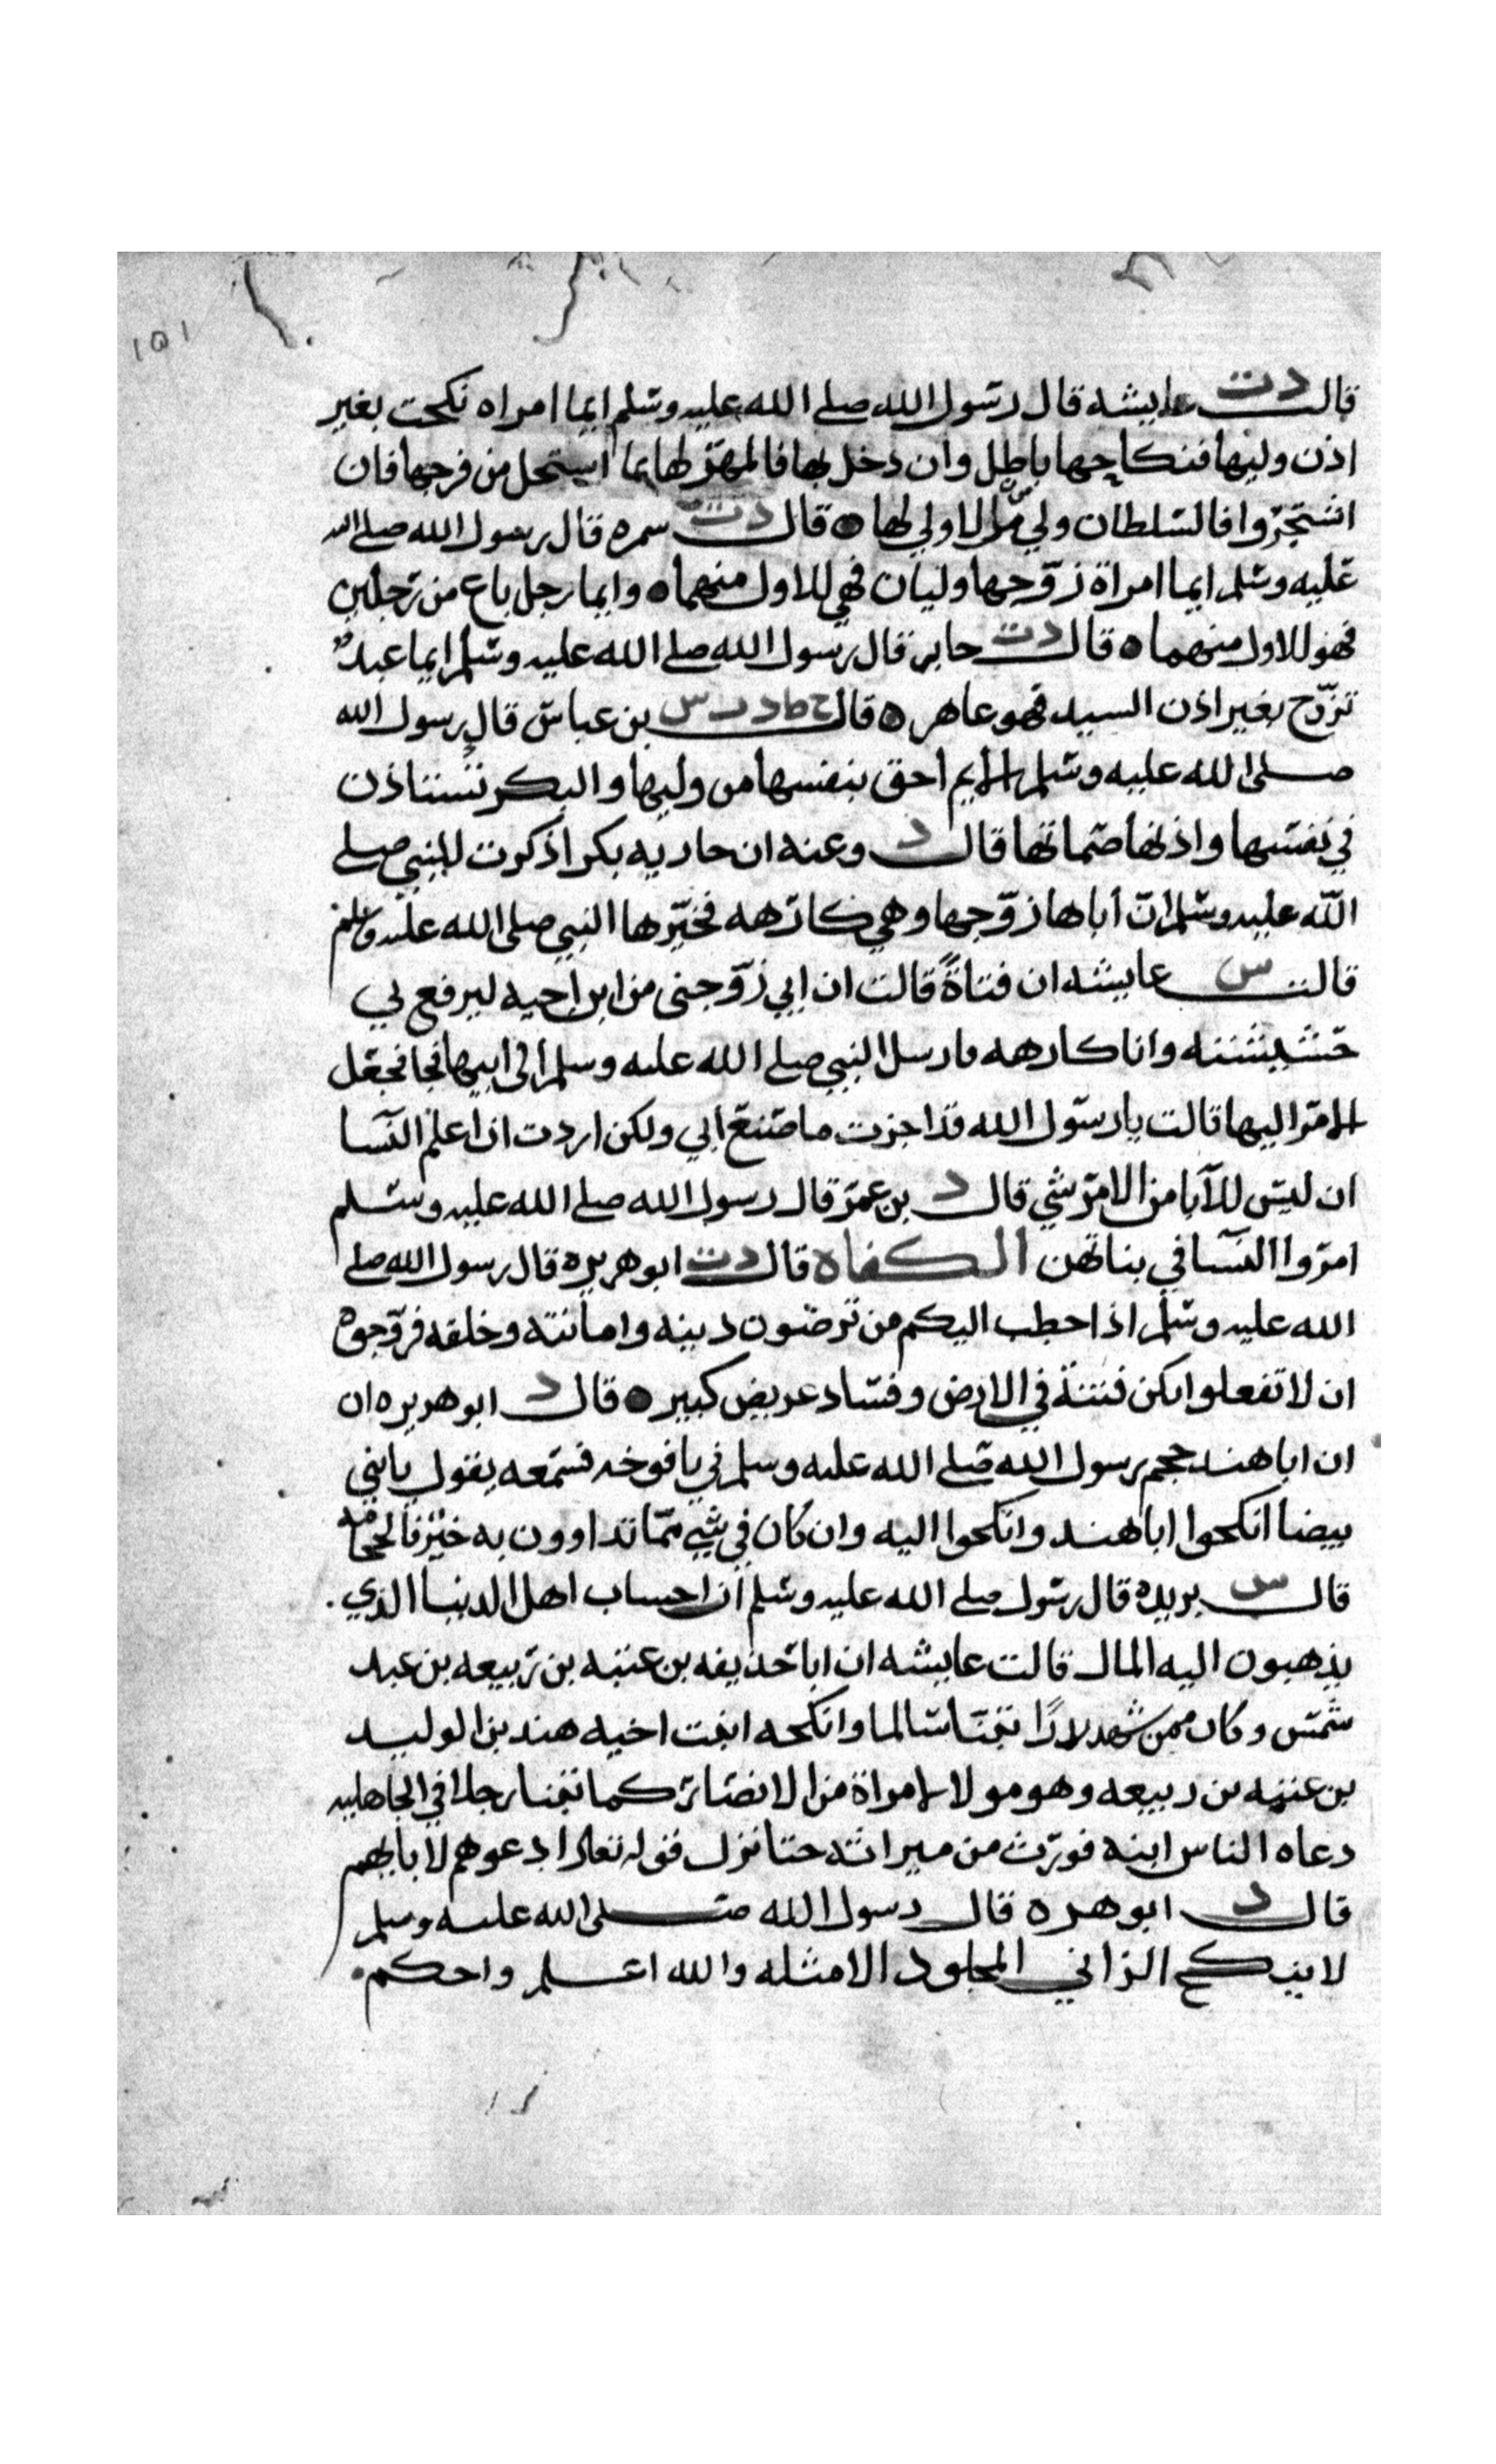 ١٥١
قالت د ت عايشه قال رسول الله صلى الله عليه وسلم ايما امراه نكحت بغير
اذن وليها فنكاحها باطل وان دخل بها فالمهر لها بما استحل من فرجها فان
اشتجروا فالسلطان ولي من لا ولي لها ه قال د ت سمره قال رسول الله صلى الله
عليه وسلم ايما امراة زوجها وليان فهي للاول منهما ه وايما رجل باع من رجلين
فهو للاول منهما ه قال د ت جابر قال رسول الله صلى الله عليه وسلم ايما عبد
تزوج بغير اذن السيد فهو عاهر ه قال ح ط د ت س بن عباس قال رسول الله
صلى الله عليه وسلم الايم احق بنفسها من وليها والبكر تستاذن
في نفسها واذنها صماتها قال د وعنه ان جاريه بكرا ذكرت للنبي صلى
الله عليه وسلم ان أباها زوجها وهي كارهه فخيرها النبي صلى الله عليه وسلم
قالت س عايشه ان فتاةً قالت ان ابي زوجني من ابن اخيه ليرفع بي
خسيسته وانا كارهه فارسل النبي صلى الله عليه وسلم الى ابيها فجا فجعل
الامر اليها قالت يا رسول الله قد اجزت ما صنع ابي ولكن اردت ان اعلم النسا
ان ليس للآبا من الامر شي قال د بن عمر قال رسول الله صلى الله عليه وسلم
امروا النسا في بناتهن الكفاه قال د ت ابو هريره قال رسول الله صلى
الله عليه وسلم اذا خطب اليكم من ترضون دينه وامانته وخلقه فزوجوه
ان لا تفعلوا تكن فتنة في الارض وفساد عريض كبير ه قال د ابو هريره ان
ان ابا هند حجم رسول الله صلى الله عليه وسلم في يافوخه فسمعه يقول يا بني
بيضا انكحوا ابا هند وانكحوا اليه وان كان في شي مما تداوون به خير فالحجامه
قال س بريده قال رسول صلى الله عليه وسلم ان احساب اهل الدنيا الذي
يذهبون اليه المال قالت عايشه ان ابا حذيفه بن عتبه بن ربيعه بن عبد
شمس وكان ممن شهد بدرًا تبنا سالما وانكحه ابنت اخيه هند بن الوليد
بن عتبه بن ربيعه وهو مولا لامراة من الانصار كما تبنا رجلا في الجاهليه
دعاه الناس ابنه فورث من ميراثه حتا نزل قوله تعالا ادعوهم لابايهم
قال د ابو هره قال رسول الله صلى الله عليه وسلم
لا ينكح الزاني المجلود الا مثله والله اعلم واحكم